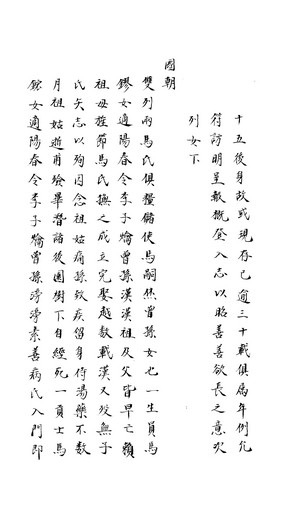 十五後身故或現存已逾三十載俱屆年例允
符訪明呈報概登入志以昭善善欲長之意次
列女下
國朝
雙列兩馬氏俱糧儲使馬嗣煃曾孫女也一生員馬
鏐女適陽春令李子燴曾孫漢漢祖及父皆早亡賴
祖母旌節馬氏撫之成立完娶越數載漢又歿無子
氏矢志以殉因念祖姑痛孫致疾留身侍湯藥不數
月祖姑逝甫殮畢潛詣後園樹下自經死一貢士馬
錝女適陽春令李子燴曾孫滂滂素善病氏入門即